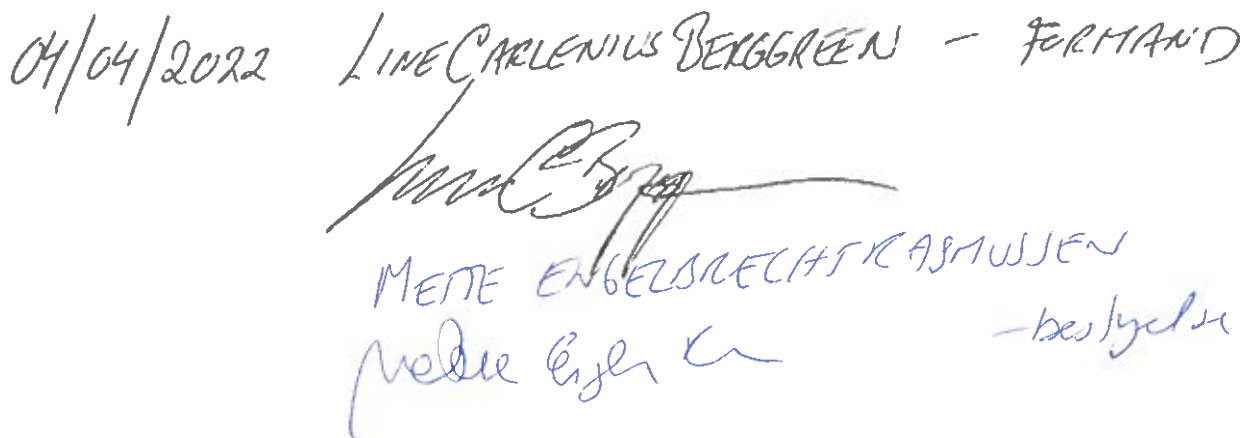 04/04/2022 LINE CARLENIUS BERGGREEN - FORMAND
METTE ENGELBRECHT RASMUSSEN
- bestyrelse